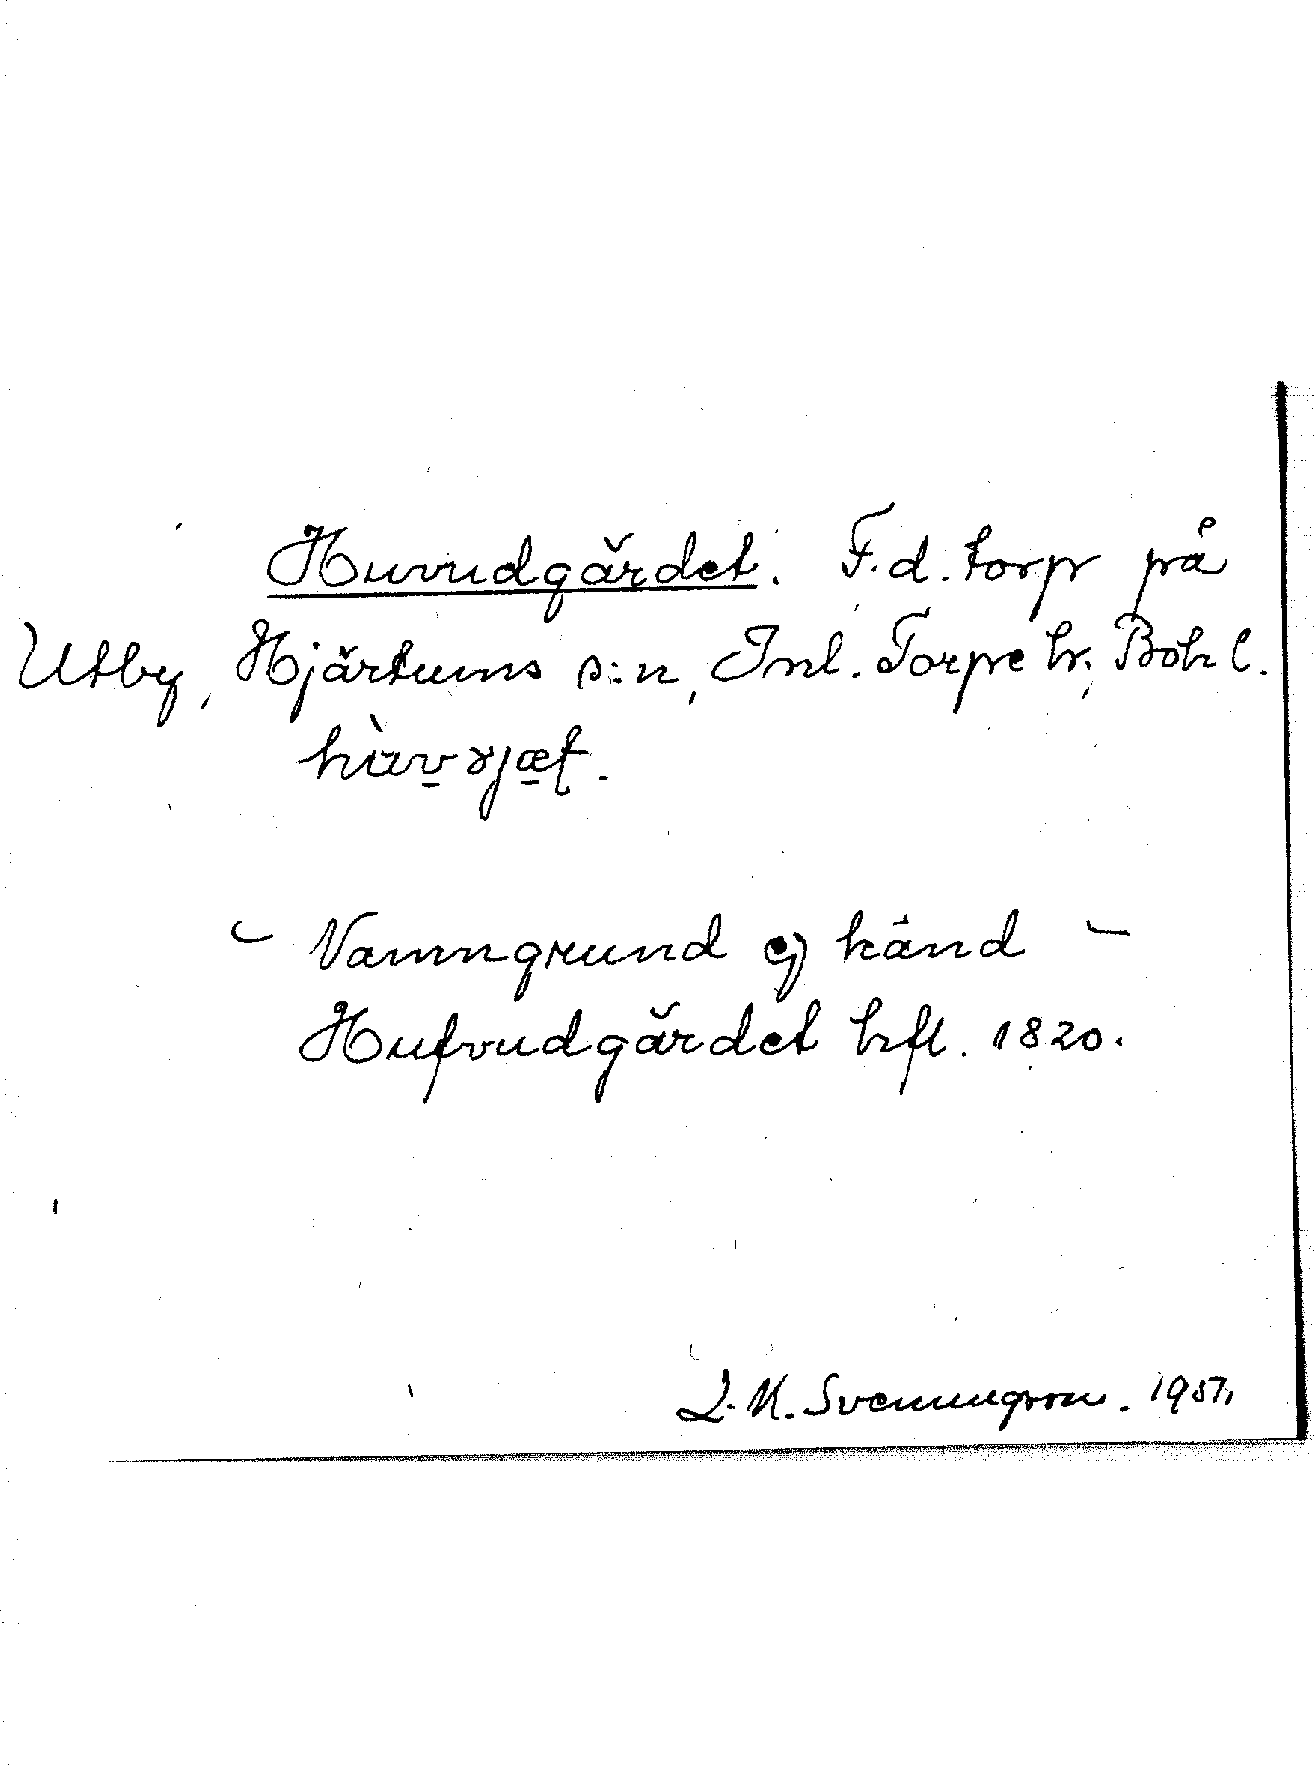 Huvudgärdet. F.d. torp på
Utby, Hjärtums s:n, Inl. Torpe hr, Boh l.
– Namngrund ej känd –
Hufvudgärdet hfl. 1820.
1951.